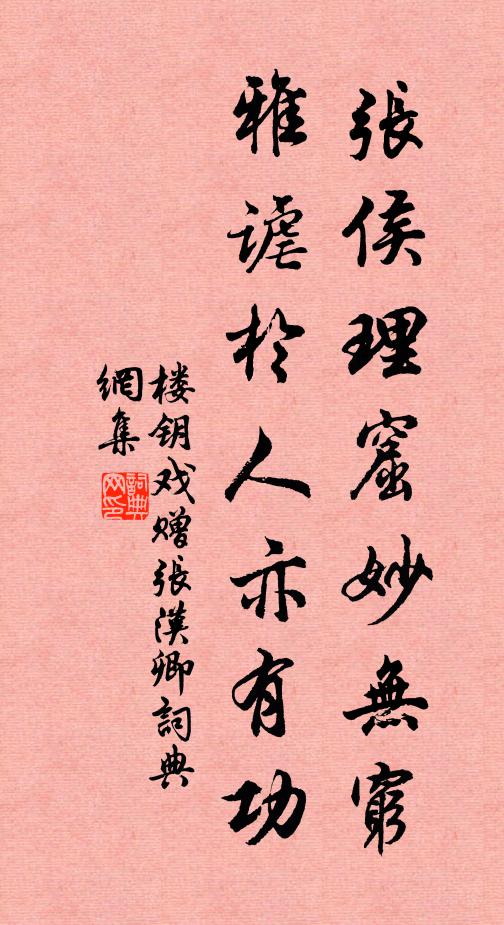 張侯理窟妙無窮
雅謔於人亦有功
楼钥戏赠張漢卿詞典
網集
詞典
网印